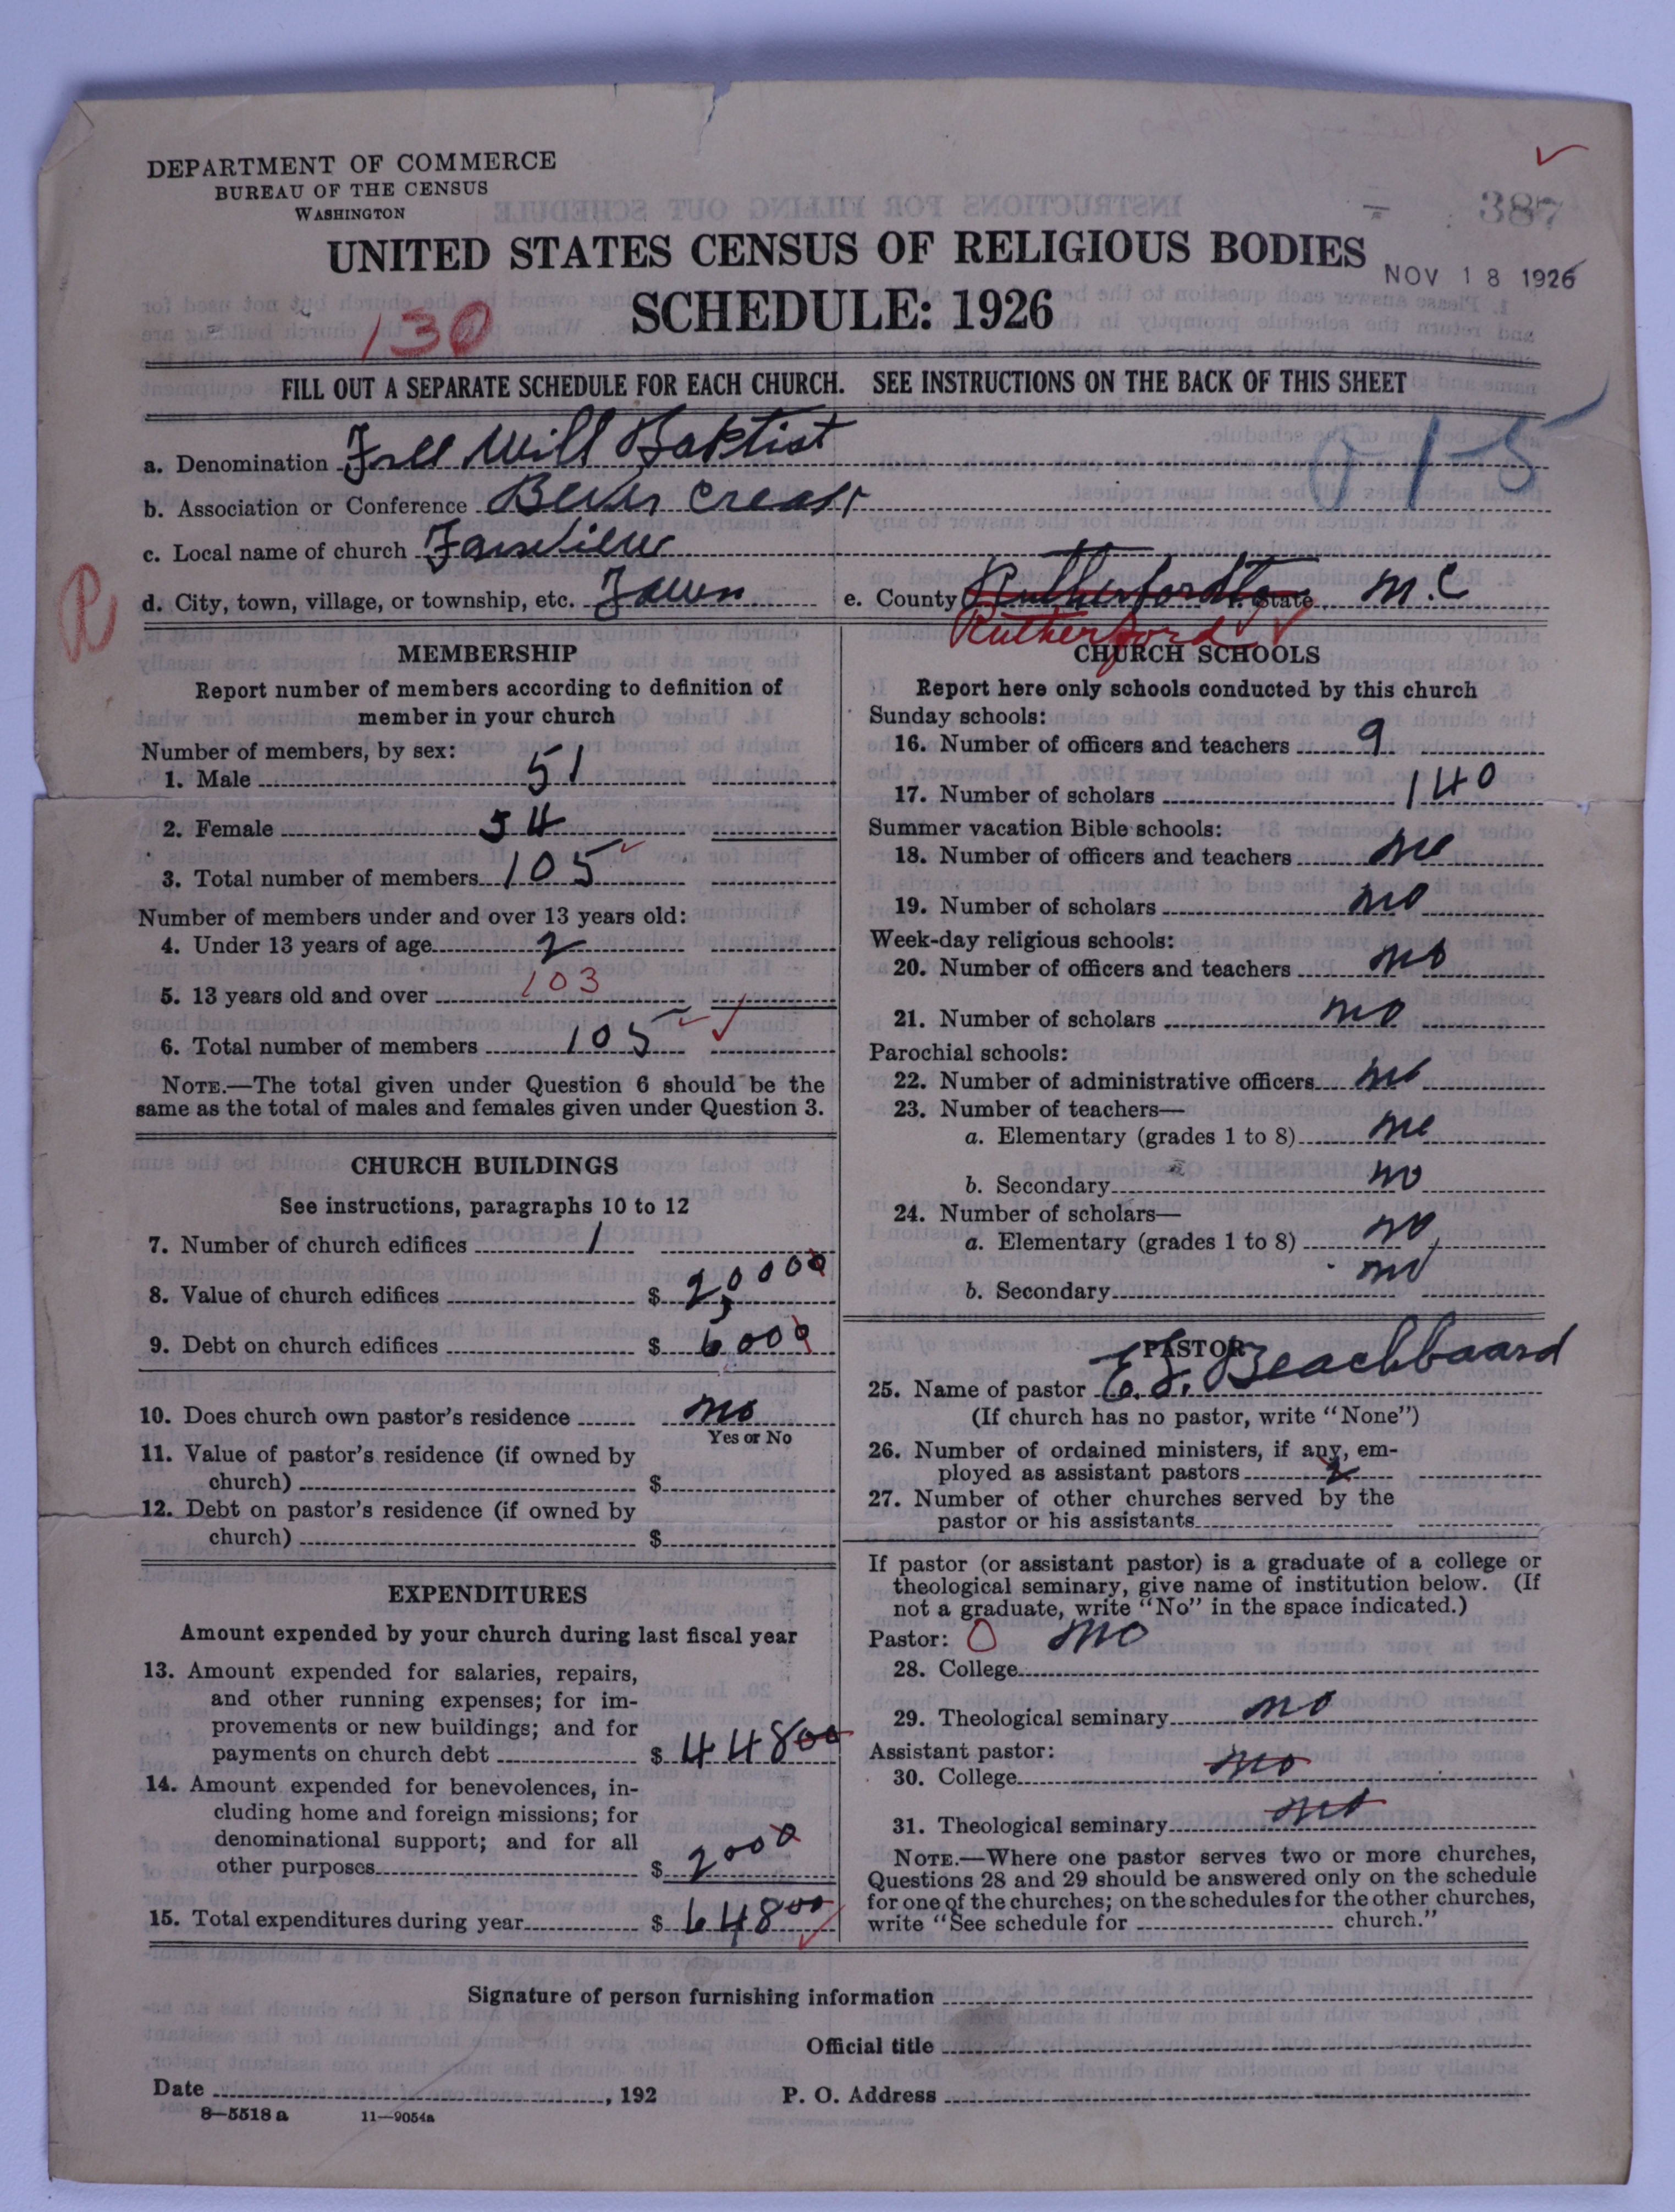 DEPARTMENT OF COMMERCE
BUREAU OF THE CENSUS
WASHINGTON
387
UNITED STATES CENSUS OF RELIGIOUS BODIES
NOV 18 1926
SCHEDULE: 1926
130
FILL OUT A SEPARATE SCHEDULE FOR EACH CHURCH. SEE INSTRUCTIONS ON THE BACK OF THIS SHEET
a. Denomination Free Will Baptist
015
b. Association or Conference
c. Local name of church
d. City, town, village, or township, etc. Town e. County Rutherfordton f. State N.C
R
Rutherford
MEMBERSHIP
Report number of members according to definition of
member in your church
Number of members, by sex:
1. Male 51
2. Female 54
3. Total number of members 105
Number of members under and over 13 years old:
4. Under 13 years of age 2
5. 13 years old and over 103
6. Total number of members 105
NOTE.—The total given under Question 6 should be the
same as the total of males and females given under Question 3.
CHURCH BUILDINGS
See instructions, paragraphs 10 to 12
7. Number of church edifices 1
8. Value of church edifices $ 2,0000
9. Debt on church edifices $ 6000
10. Does church own pastor's residence no
Yes or No
11. Value of pastor's residence (if owned by
church) $
12. Debt on pastor's residence (if owned by
church) $
EXPENDITURES
Amount expended by your church during last fiscal year
13. Amount expended for salaries, repairs,
and other running expenses; for im-
provements or new buildings; and for
payments on church debt $ 44800
14. Amount expended for benevolences, in-
cluding home and foreign missions; for
denominational support; and for all
other purposes $ 2000
15. Total expenditures during year $ 64800
CHURCH SCHOOLS
Report here only schools conducted by this church
Sunday schools:
16. Number of officers and teachers 9
17. Number of scholars 140
Summer vacation Bible schools:
18. Number of officers and teachers no
19. Number of scholars no
Week-day religious schools:
20. Number of officers and teachers no
21. Number of scholars no
Parochial schools:
22. Number of administrative officers no
23. Number of teachers—
a. Elementary (grades 1 to 8) no
b. Secondary no
24. Number of scholars—
a. Elementary (grades 1 to 8) no
b. Secondary no
PASTOR
25. Name of pastor Beachboard
(If church has no pastor, write "None")
26. Number of ordained ministers, if any, em-
ployed as assistant pastors 2
27. Number of other churches served by the
pastor or his assistants
If pastor (or assistant pastor) is a graduate of a college or
theological seminary, give name of institution below. (If
not a graduate, write "No" in the space indicated.)
Pastor: 0 no
28. College
29. Theological seminary no
Assistant pastor:
30. College no
31. Theological seminary no
NOTE.—Where one pastor serves two or more churches,
Questions 28 and 29 should be answered only on the schedule
for one of the churches; on the schedules for the other churches,
write "See schedule for church."
Signature of person furnishing information
Official title
Date , 192 P. O. Address
8—5518 a 11—9054a